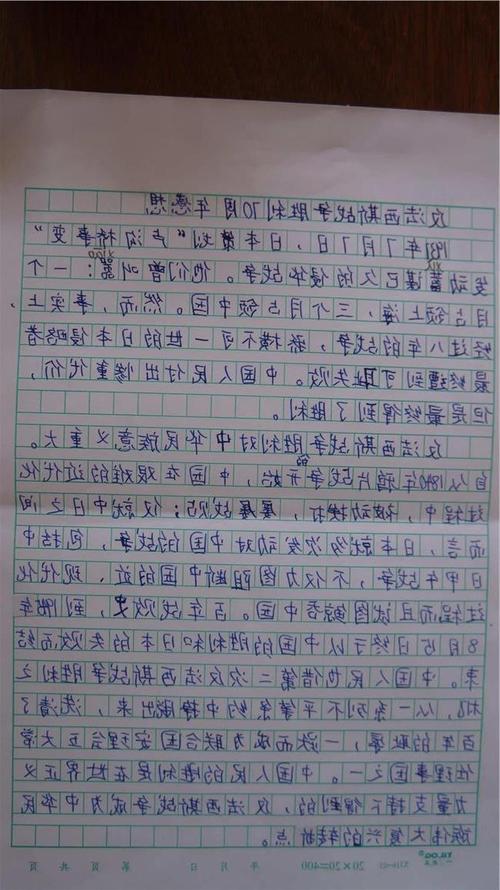 反法西斯战争胜利70周年感想
1937年7月7日，日本策划“卢沟桥事变”
xu xiao
发动蓄谋已久的侵华战争。他们曾叫嚣：一个
月占领上海，三个月占领中国。然而，事实上
经过八年的战争，骄横不可一世的日本侵略者
最终遭到可耻失败。中国人民付出惨重代价，
但是最终得到了胜利。
反法西斯战争胜利对中华民族意义重大。
自从1840年鸦片战争的开始，中国在艰难的近代化
过程中，被动挨打，屡屡战败；仅就中日之间
而言，日本就多次发动对中国的战争，包括中
日甲午战争，不仅力图阻断中国的近、现代化
过程而且试图鲸吞中国。百年战败史，到1945年
8月15日终于以中国的胜利和日本的失败而结
束。中国人民也借第二次反法西斯战争胜利之
机，从一系列不平等条约中挣脱出来，洗清了
百年的耻辱，一跃而成为联合国安理会五大常
任理事国之一。中国人民的胜利是在世界正义
力量支持下得到的，反法西斯战争成为中华民
族伟大复兴的转折点。
20×20=400 年 月 日 第 页 共 页